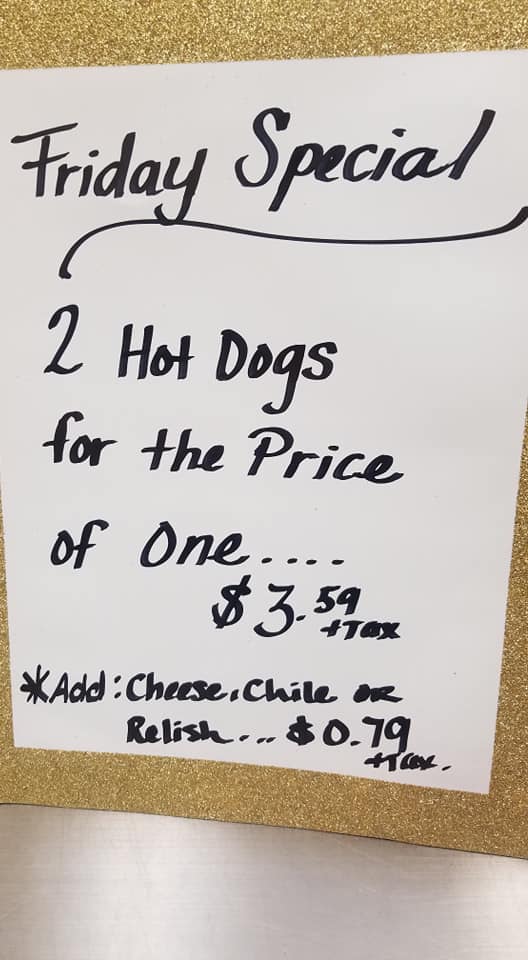 Friday Special
2 Hot Dogs
for the Price
of One....
$3.59
+Tax
*Add: Cheese, Chile OR
Relish... $0.79
+Tax.